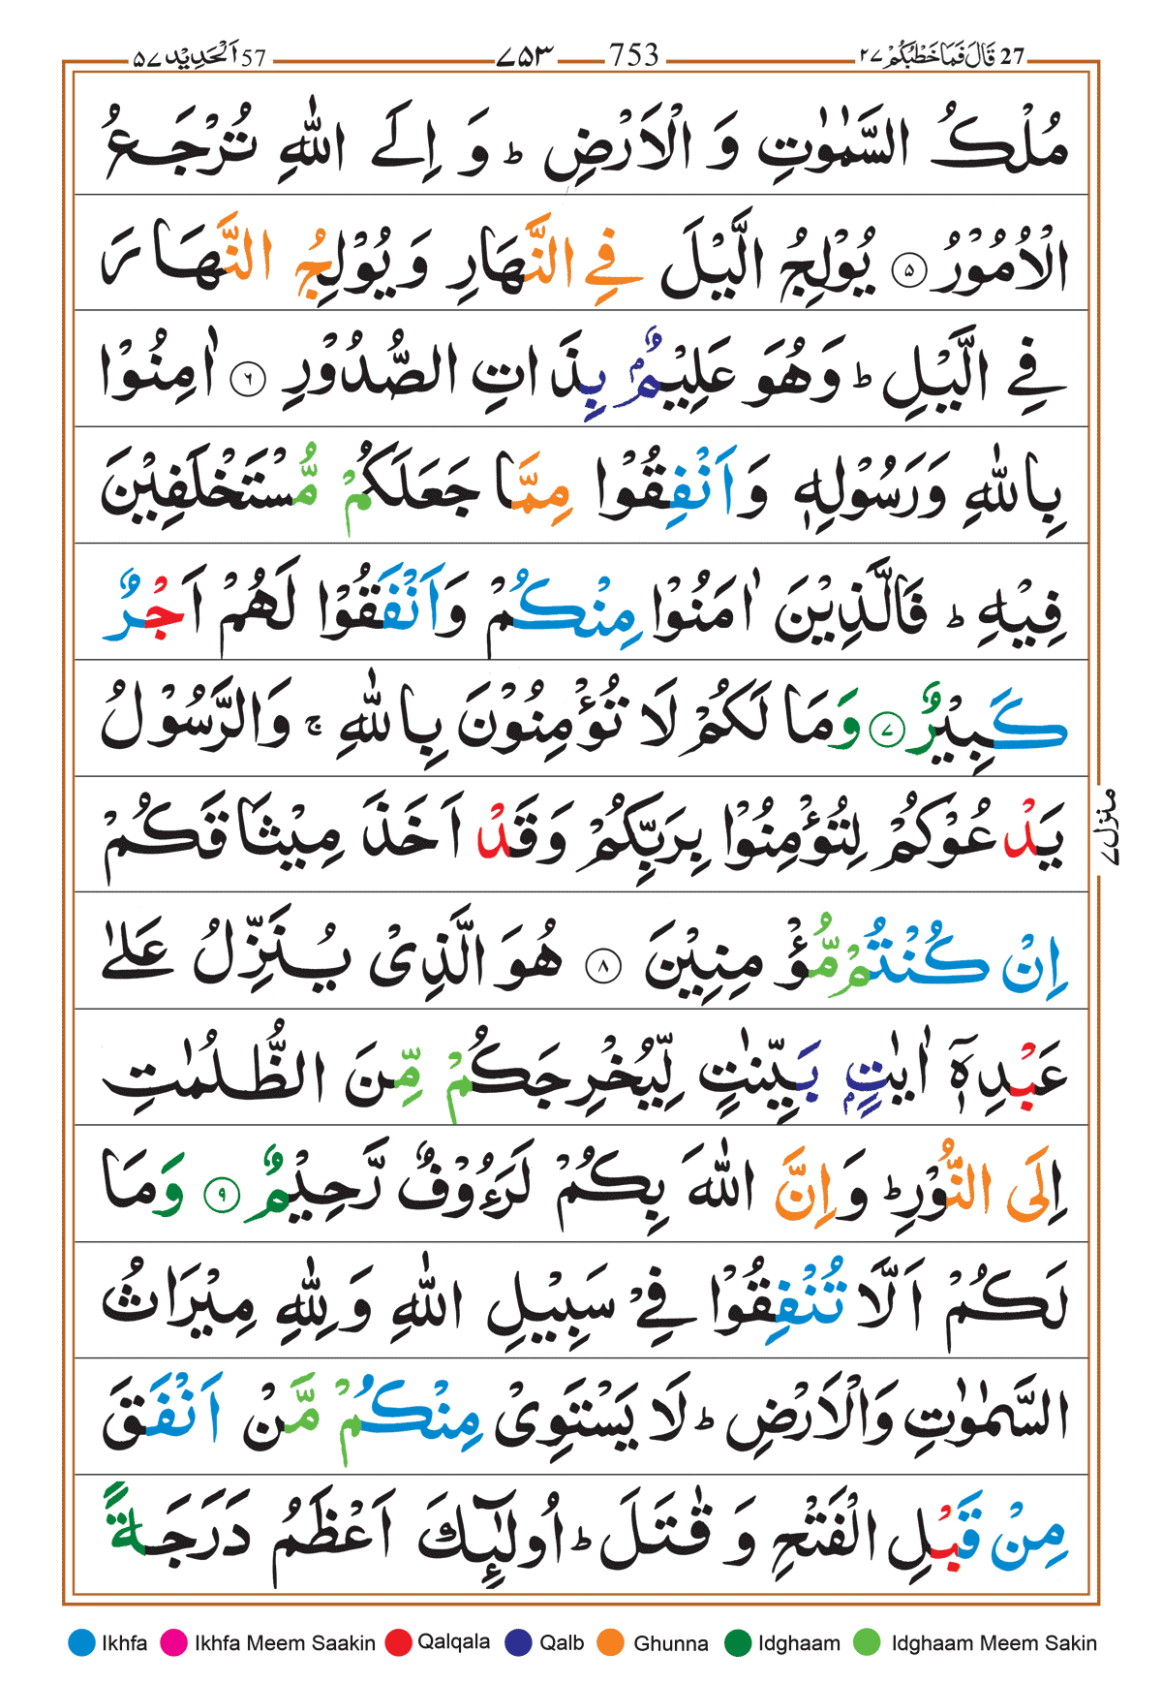 27 قَالَ فَمَا خَطْبُكُمْ ٢٧ 753 ٧٥٣ 57 اَلْحَدِيْد ٥٧
مُلْكُ السَّمٰوٰتِ وَ الْاَرْضِ ؕ وَ اِلَى اللّٰهِ تُرْجَعُ
الْاُمُوْرُ ۝٥ يُوْلِجُ الَّيْلَ فِى النَّهَارِ وَيُوْلِجُ النَّهَارَ
فِى الَّيْلِ ؕ وَهُوَ عَلِيْمٌۢ بِذَاتِ الصُّدُوْرِ ۝٦ اٰمِنُوْا
بِاللّٰهِ وَرَسُوْلِهٖ وَاَنْفِقُوْا مِمَّا جَعَلَكُمْ مُّسْتَخْلَفِيْنَ
فِيْهِ ؕ فَالَّذِيْنَ اٰمَنُوْا مِنْكُمْ وَاَنْفَقُوْا لَهُمْ اَجْرٌ
كَبِيْرٌ ۝٧ وَمَا لَكُمْ لَا تُؤْمِنُوْنَ بِاللّٰهِ ۚ وَالرَّسُوْلُ
يَدْعُوْكُمْ لِتُؤْمِنُوْا بِرَبِّكُمْ وَقَدْ اَخَذَ مِيْثَاقَكُمْ
اِنْ كُنْتُمْ مُّؤْمِنِيْنَ ۝٨ هُوَ الَّذِىْ يُنَزِّلُ عَلٰى
عَبْدِهٖۤ اٰيٰتٍۭ بَيِّنٰتٍ لِّيُخْرِجَكُمْ مِّنَ الظُّلُمٰتِ
اِلَى النُّوْرِ ؕ وَاِنَّ اللّٰهَ بِكُمْ لَرَءُوْفٌ رَّحِيْمٌ ۝٩ وَمَا
لَكُمْ اَلَّا تُنْفِقُوْا فِىْ سَبِيْلِ اللّٰهِ وَلِلّٰهِ مِيْرَاثُ
السَّمٰوٰتِ وَالْاَرْضِ ؕ لَا يَسْتَوِىْ مِنْكُمْ مَّنْ اَنْفَقَ
مِنْ قَبْلِ الْفَتْحِ وَ قٰتَلَ ؕ اُولٰٓئِكَ اَعْظَمُ دَرَجَةً
منزل ٧
Ikhfa Ikhfa Meem Saakin Qalqala Qalb Ghunna Idghaam Idghaam Meem Sakin